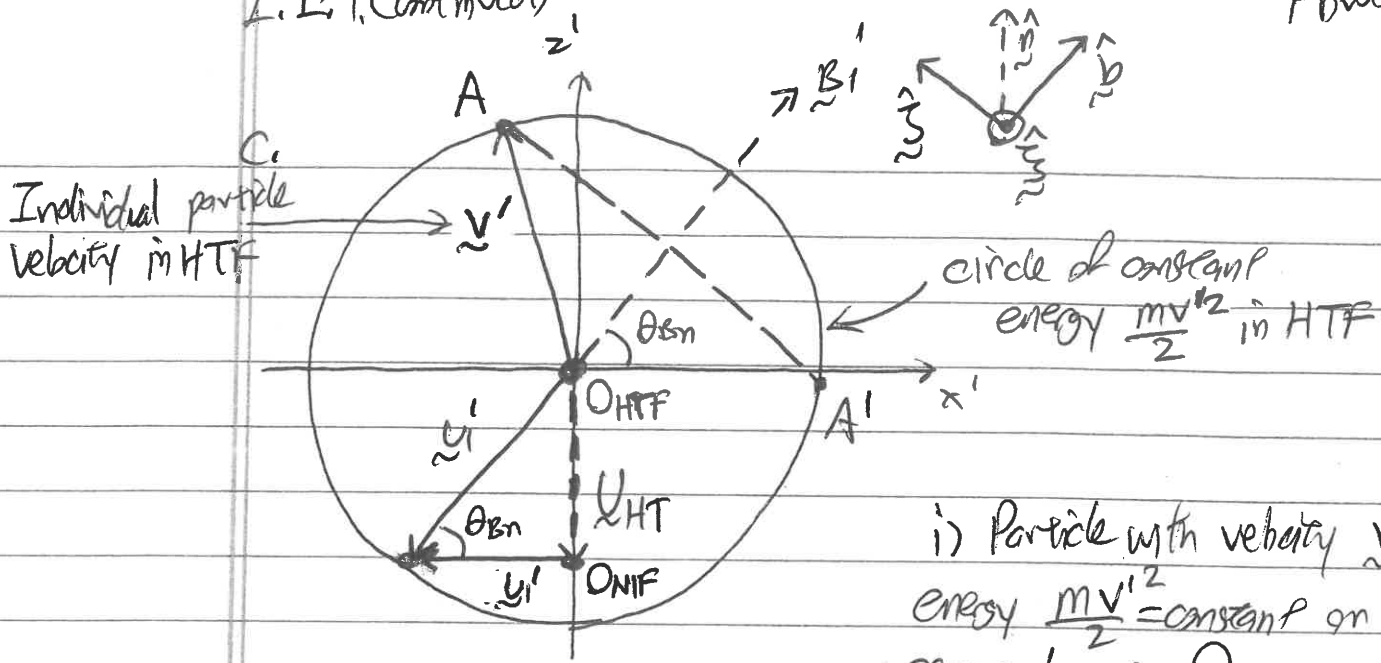 z'
A
B₁'
n̂
b̂
ζ̂
ξ̂
C.
Individual particle
velocity in HTF
v'
circle of constant
energy mv'²/2 in HTF
θBn
x'
OHTF
A'
u₁'
UHT
θBn
u₁'
ONIF
i) Particle with velocity
energy mv'²/2 = constant on